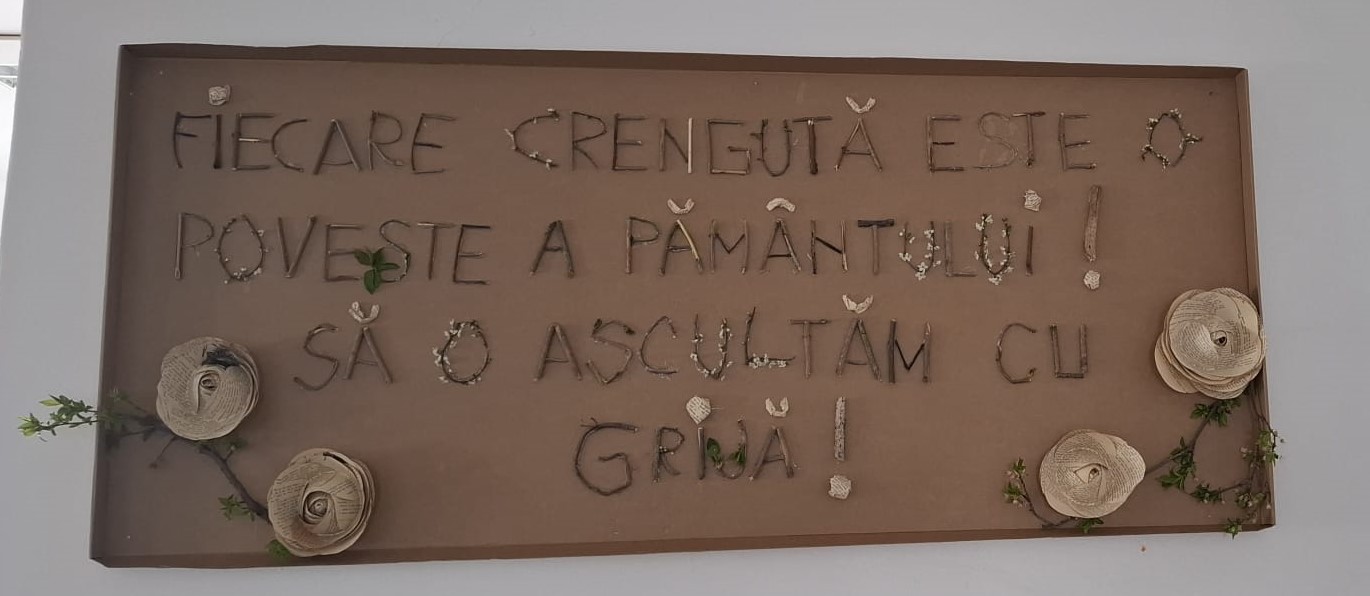 FIECARE CRENGUTĂ ESTE O
POVESTE A PĂMÂNTULUI !
SĂ O ASCULTĂM CU
GRIJĂ !